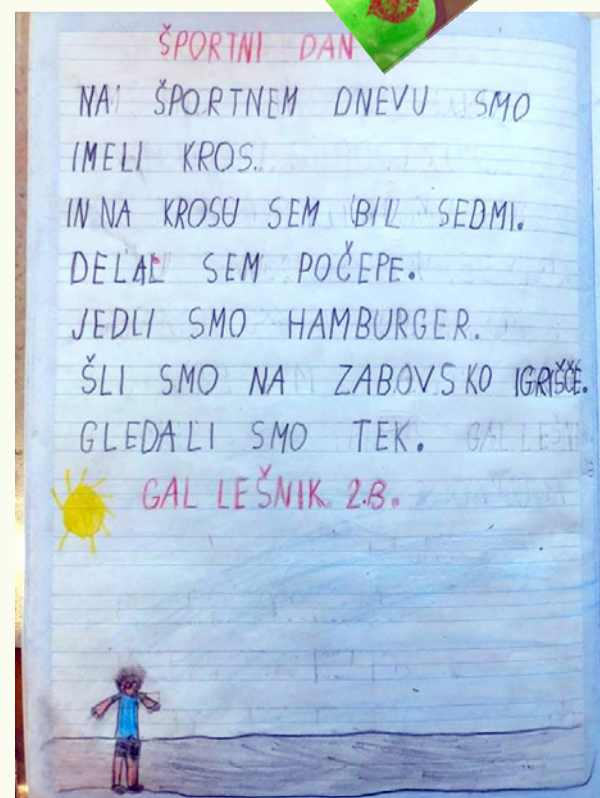 ŠPORTNI DAN
NA ŠPORTNEM DNEVU SMO
IMELI KROS.
IN NA KROSU SEM BIL SEDMI.
DELAL SEM POČEPE.
JEDLI SMO HAMBURGER.
ŠLI SMO NA ZABOVSKO IGRIŠČE.
GLEDALI SMO TEK.
GAL LEŠNIK 2.B.